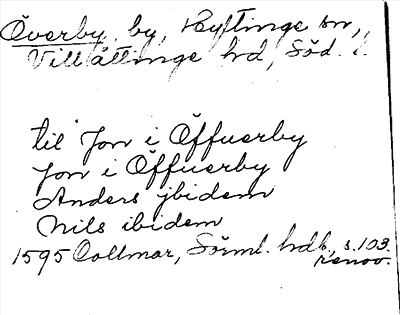 Överby, by, Flyttinge sn,
Villåttinge hd, Söd. l.
til Jon i Öffuerby
Jon i Öffuerby
Anders jbidem
Nils ibidem
1595 Collmar, Sörml. hdl., s. 103.
renov.